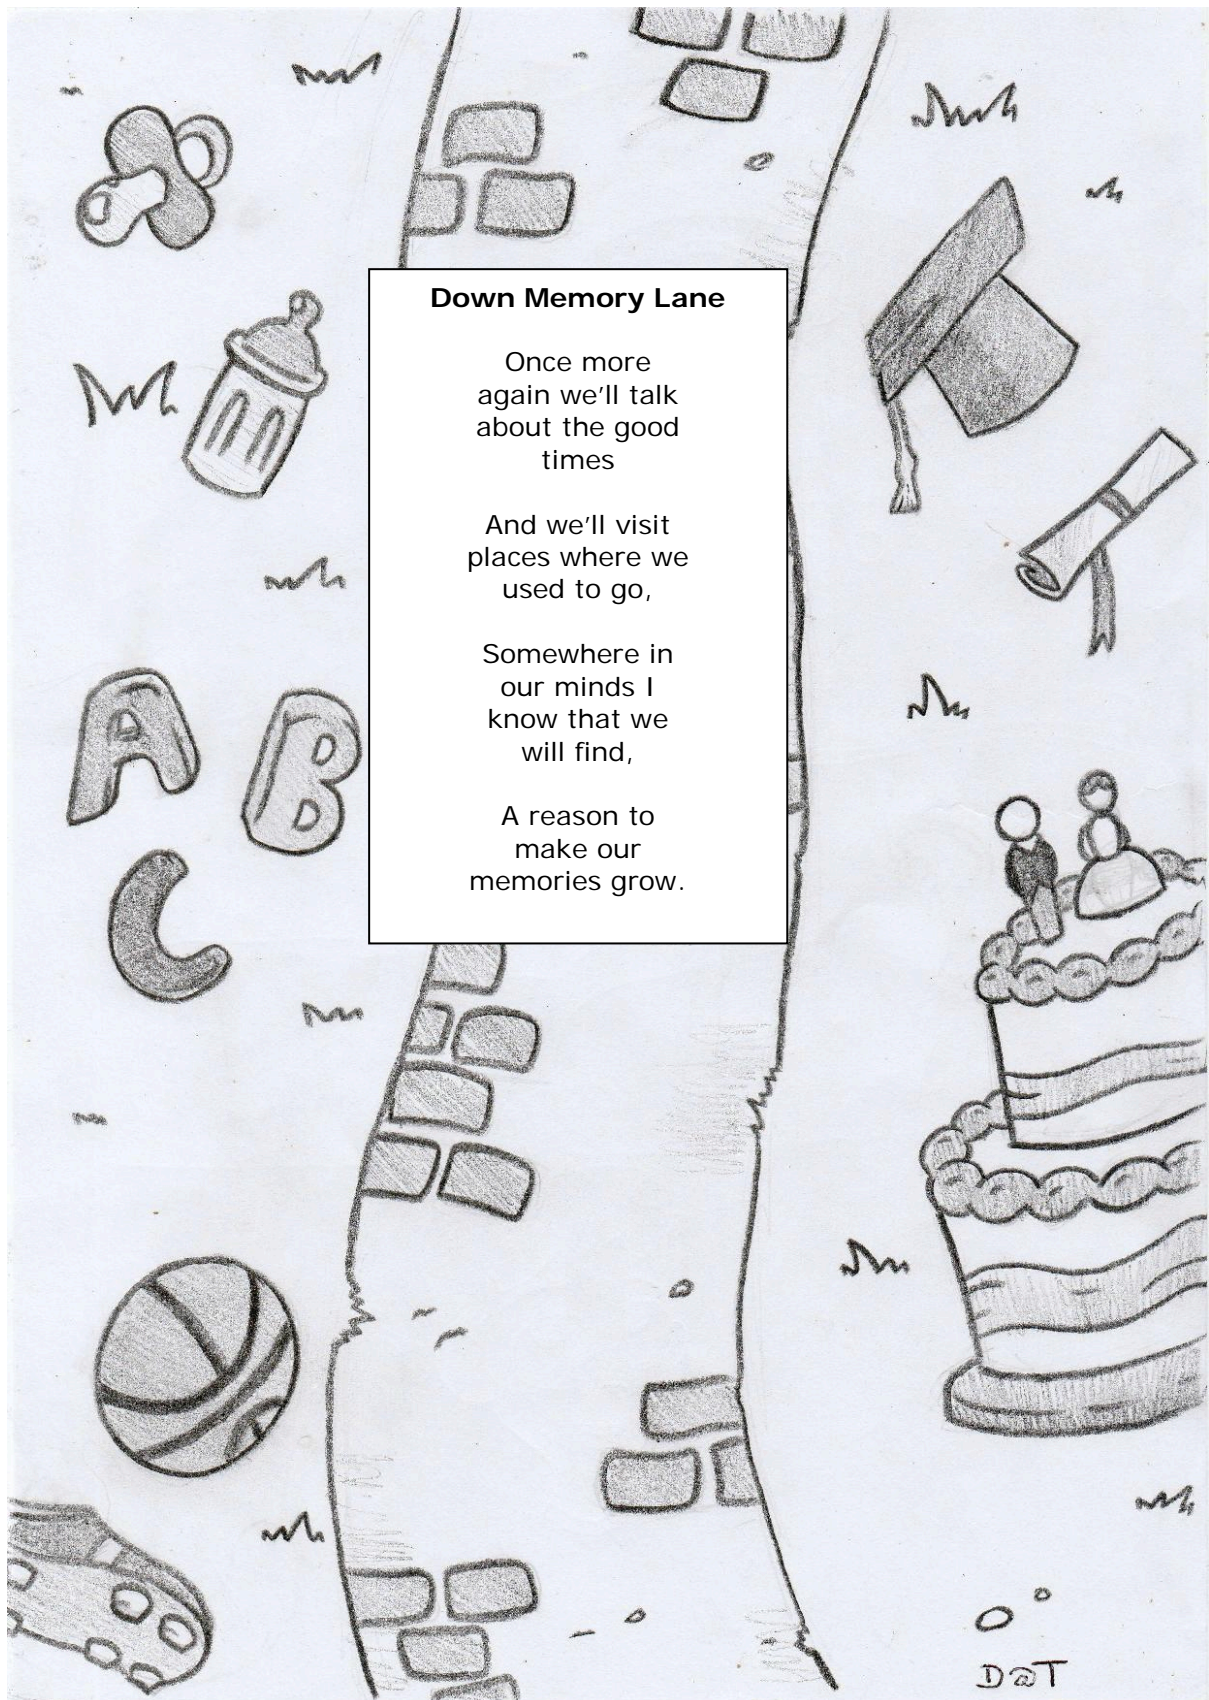 Down Memory Lane
Once more
again we'll talk
about the good
times
And we'll visit
places where we
used to go,
Somewhere in
our minds I
know that we
will find,
A reason to
make our
memories grow.
A B
C
D@T